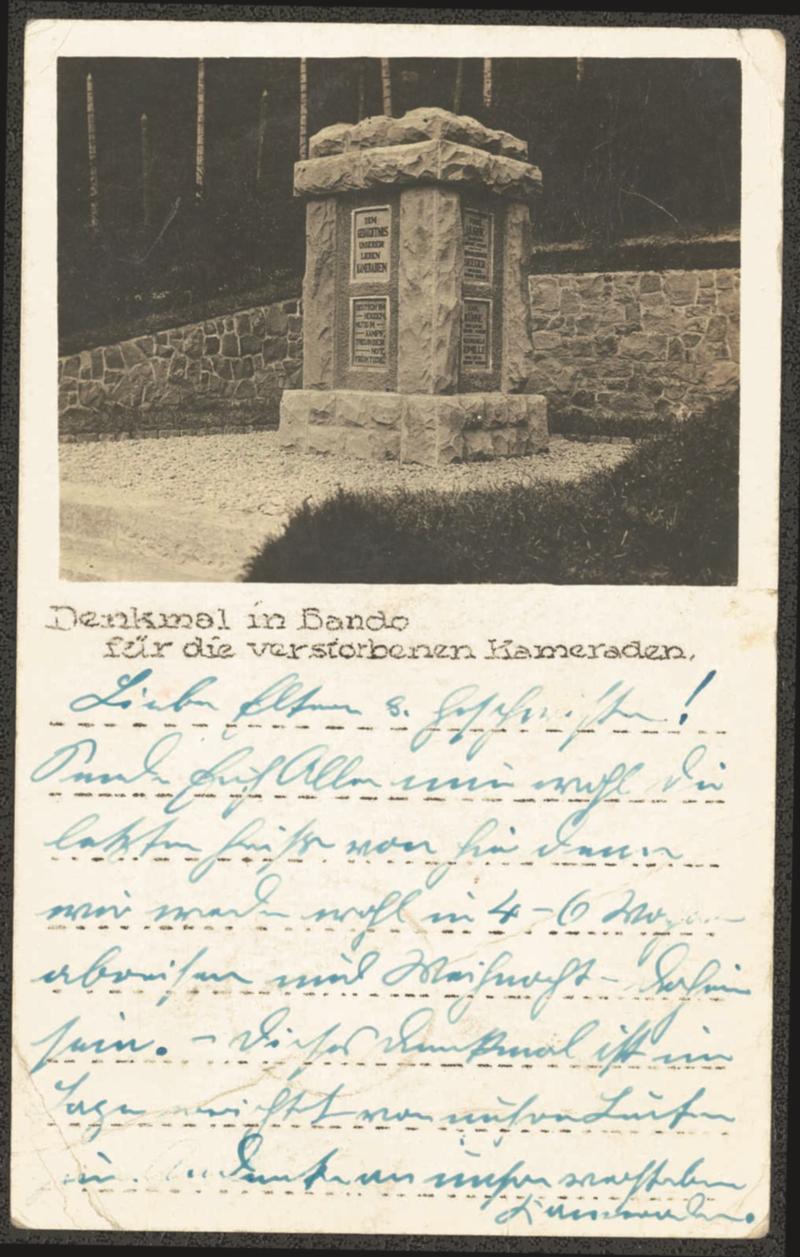 DEM
GEDÄCHTNIS
UNSERER
LIEBEN
KAMERADEN
DEUTSCH IM
HERZEN,
KAMPF,
Denkmal in Bando
für die verstorbenen Kameraden.
Liebe Eltern & Geschwister!
Sende Euch Allen nun wohl die
letzten Grüsse von hier denn
wir werden wohl in 4-6 Wochen
abreisen und Weihnacht- daheim
sein. - Dieses Denkmal ist im
Lager errichtet von unsern Leuten
zum Andenken an unsre verstorben
Kameraden.